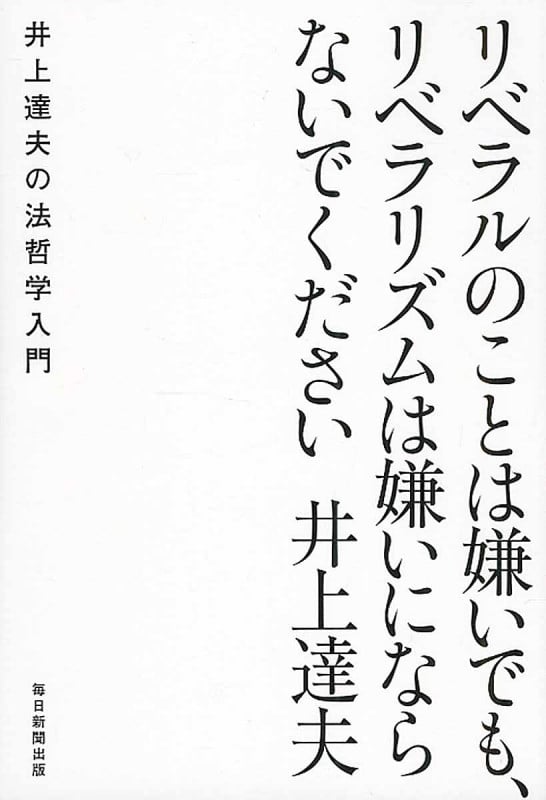 リベラルのことは嫌いでも、
リベラリズムは嫌いになら
ないでください 井上達夫
井上達夫の法哲学入門
毎日新聞出版